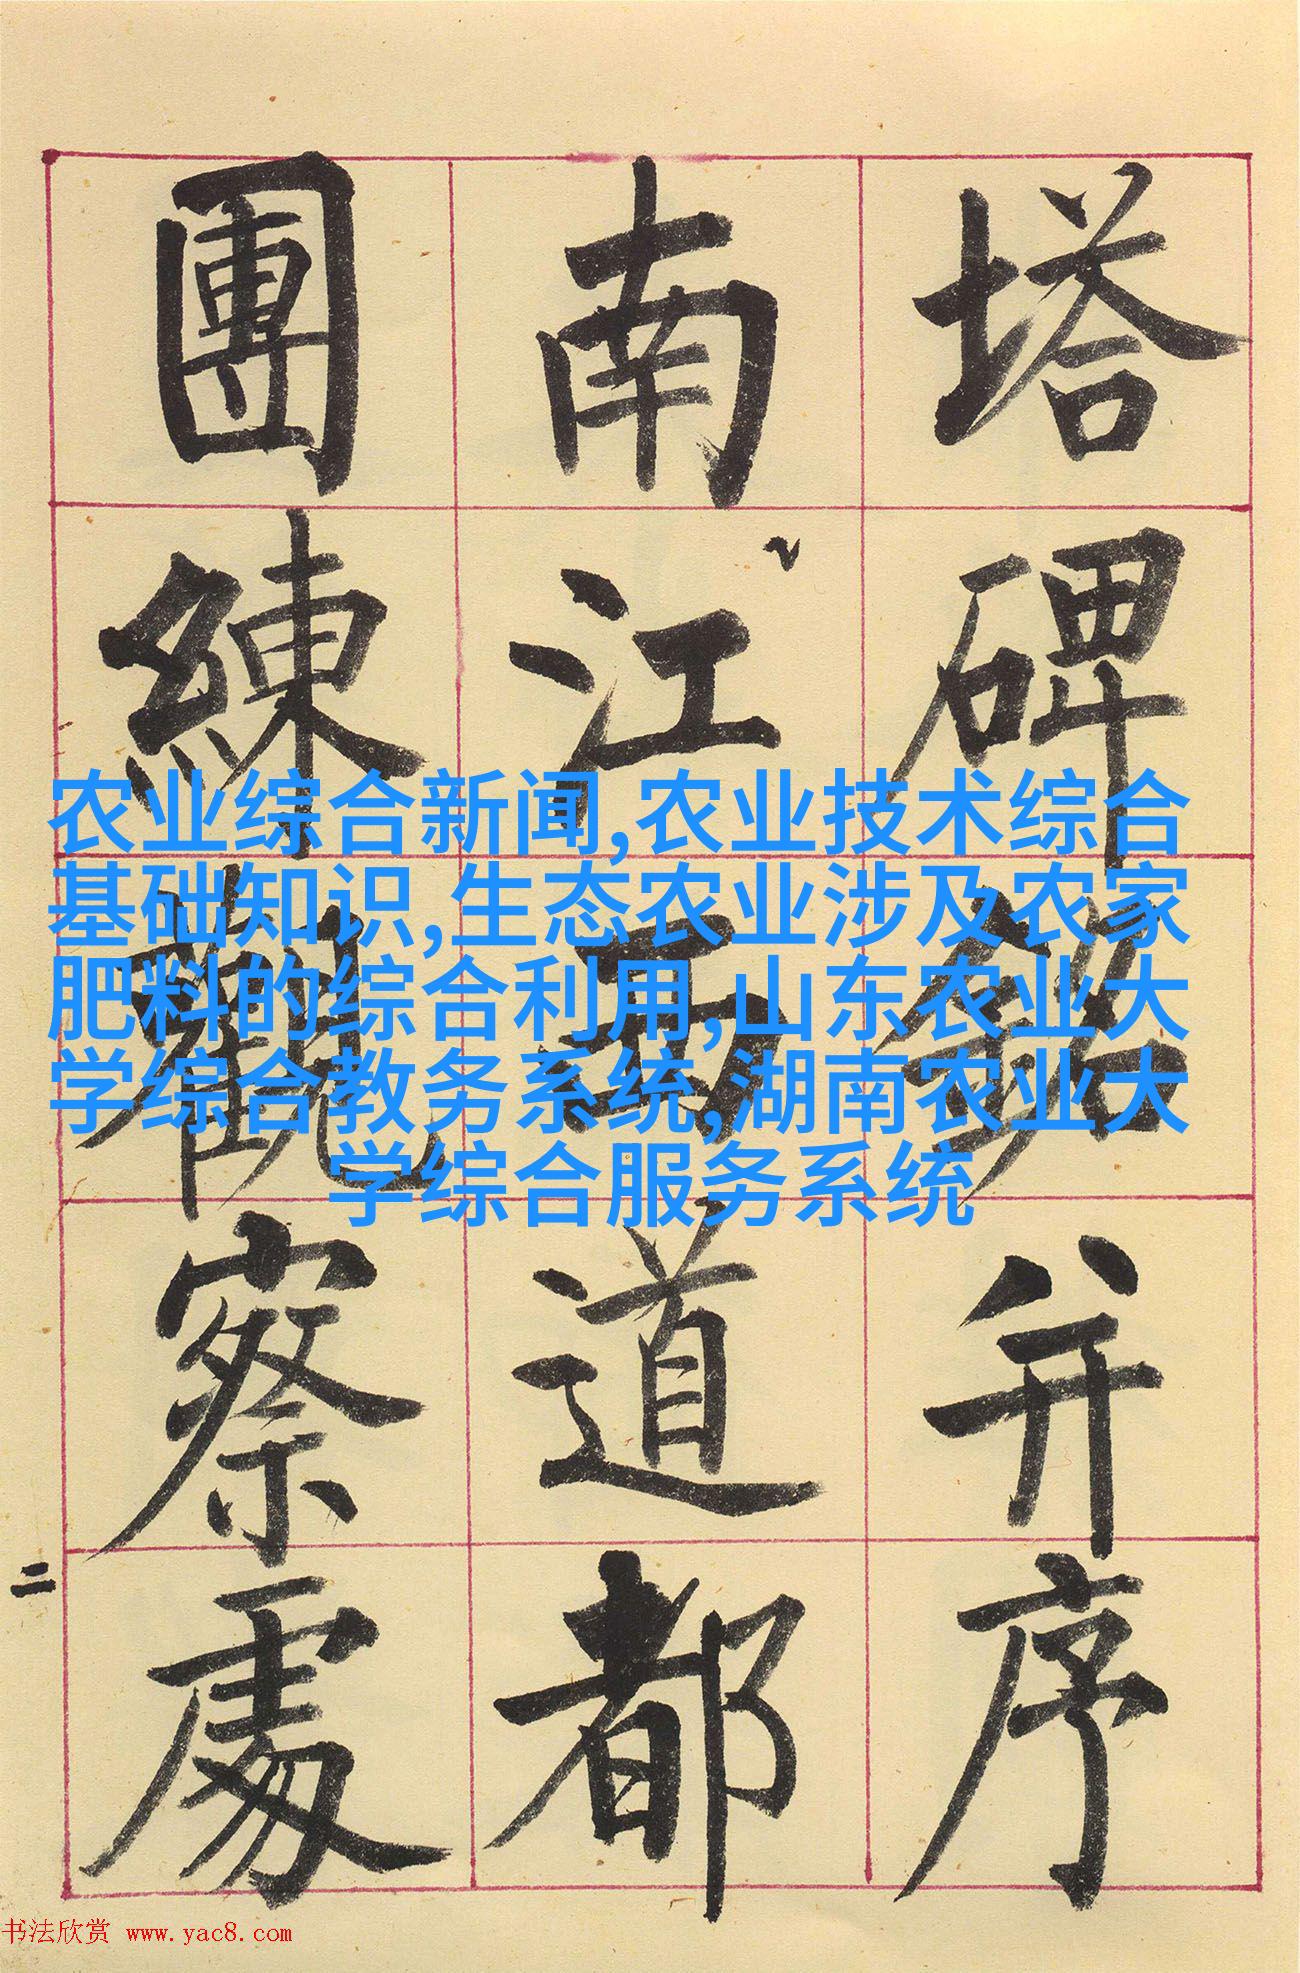 塔碑銘并序
南江西道都
團練觀察處
农业综合新闻,农业技术综合
基础知识,生态农业涉及农家
肥料的综合利用,山东农业大
学综合教务系统,湖南农业大
学综合服务系统
二
书法欣赏 www.yac8.com